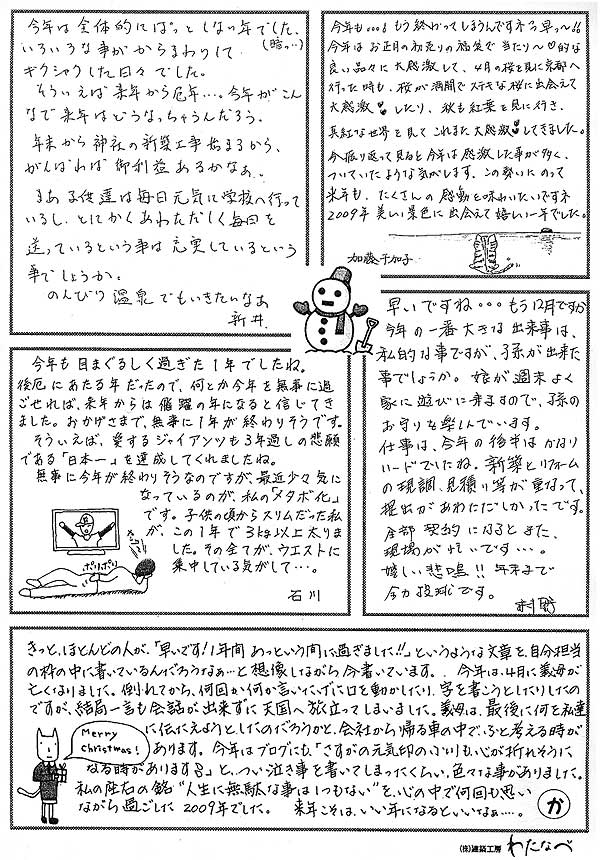 今年は全体的にぱっとしない年でした。
(暗っ…)
いろいろな事がからまわりして
ギクシャクした日々でした。
そういえば来年から厄年…。今年がこん
なで来年はどうなっちゃうんだろう。
年末から神社の新築工事始まるから、
がんばれば御利益あるかなぁ。
まあ子供達は毎日元気に学校へ行って
いるし、とにかくあわただしく毎日を
送っているという事は充実しているという
事でしょうか。
のんびり温泉でもいきたいなあ
新井
今年も…。もう終わってしまうんですネっ早っ〜!!
今年はお正月の初売りの福袋で当たり〜♡的な
良い品々に大感激して、4月の桜を見に京都へ
行った時も、桜が満開でステキな桜に出会えて
大感激♥したり、秋も紅葉を見に行き、
真紅な世界を見てこれまた大感激♥してきました。
今振り返って見ると今年は感激した事が多く、
ついていたような気がします。この勢いにのって
来年も、たくさんの感動を味わいたいですネ
2009年美しい景色に出会えて嬉しい一年でした。
加藤千加子
早いですね…もう12月ですか
今年の一番大きな出来事は、
私的な事ですが、孫が出来た
事でしょうか。娘が週末よく
家に遊びに来ますので、孫の
お守りを楽しんでいます。
仕事は、今年の後半はかなり
ハードでしたね。新築とリフォーム
の現調、見積り等が重なって、
提出があわただしかったです。
全部契約になるとまた、
現場が忙いです…。
嬉しい悲鳴!!年末まで
全力投球です。
村野
今年も目まぐるしく過ぎた1年でしたね。
後厄にあたる年だったので、何とか今年を無事に過
ごせれば、来年からは飛躍の年になると信じてき
ました。おかげさまで、無事に1年が終わりそうです。
そういえば、愛するジャイアンツも3年越しの悲願
である「日本一」を達成してくれましたね。
無事に今年が終わりそうなのですが、最近少々気に
なっているのが、私の「メタボ化」
です。子供の頃からスリムだった私
が、この1年で3kg以上太りま
した。その全てが、ウエストに
集中している気がして…。
石川
ポリポリ
きっと、ほとんどの人が、「早いです!1年間あっという間に過ぎました!!」というような文章を、自分担当
の枠の中に書いているんだろうなぁ…と想像しながら今書いています。今年は、4月に義母が
亡くなりました。倒れてから、何回か何か言いたいずに口を動かしたり、字を書こうとしたりしたの
ですが、結局一言も会話が出来ずに天国へ旅立ってしまいました。義母は、最後に何を私達
に伝えようとしたのだろうかと、会社から帰る車の中で、ふと考える時が
あります。今年はブログにも、「さすがの元気印の
も心が折れそうに
なる時があります
」と、つい泣き事を書いてしまったくらい、色々な事がありました。
私の座右の銘"人生に無駄な事は1つもない"を、心の中で何回も思い
ながら過ごした2009年でした。来年こそは、いい年になるといいなぁ…。
か
Merry
Christmas!
(株)建築工房 わたなべ